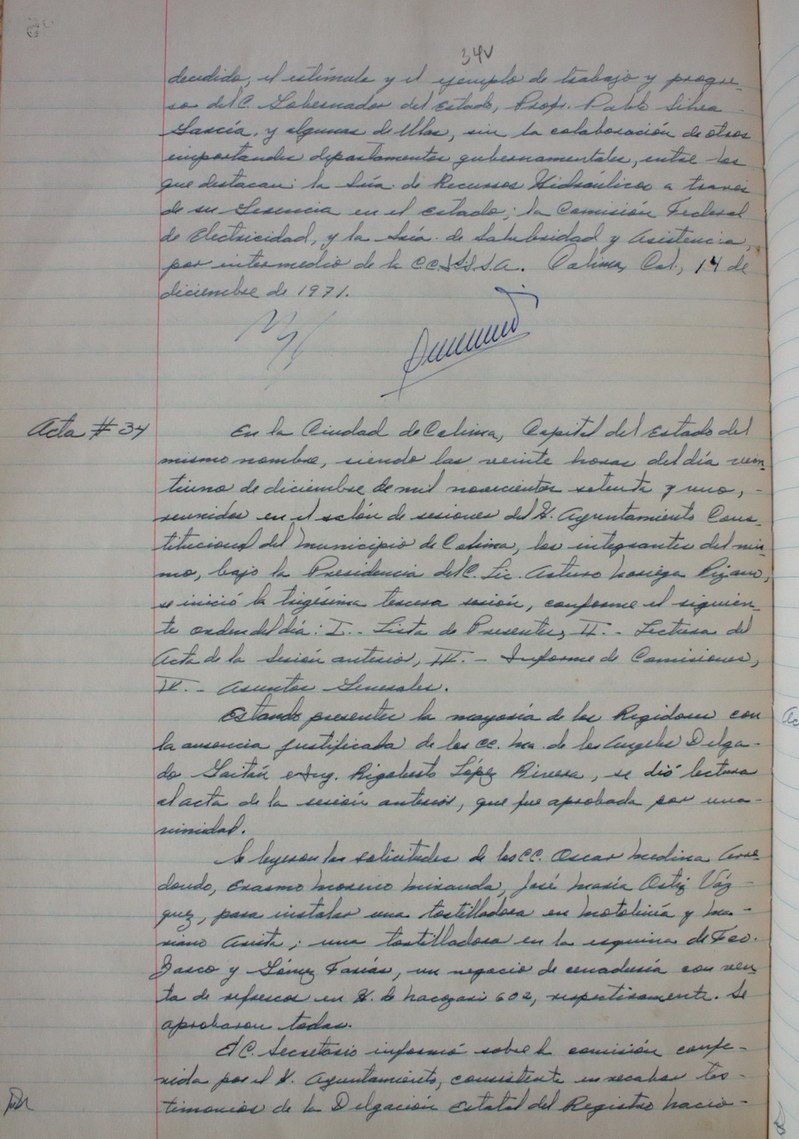 34v
decidido, el estímulo y el ejemplo de trabajo y progre-
so del C. Gobernador del Estado, Profr. Pablo Silva
García, y algunas de ellas, sin la colaboración de otros
importantes departamentos gubernamentales, entre los
que destacan: la Sría. de Recursos Hidráulicos a través
de su Gerencia en el Estado; la Comisión Federal
de Electricidad, y la Sría. de Salubridad y Asistencia,
por intermedio de la C.C.S.S.S.A. Colima, Col., 14 de
diciembre de 1971.
Acta # 34
En la Ciudad de Colima, Capital del Estado del
mismo nombre, siendo las veinte horas del día vein-
tiuno de diciembre de mil novecientos setenta y uno, -
reunidos en el salón de sesiones del H. Ayuntamiento Cons-
titucional del Municipio de Colima, los integrantes del mis-
mo, bajo la Presidencia del C. Lic. Arturo Noriega Pizano,
se inició la trigésima tercera sesión, conforme el siguien-
te orden del día: I.- Lista de Presentes, II.- Lectura del
Acta de la Sesión anterior, III.- Informe de Comisiones,
IV.- Asuntos Generales.
Estando presentes la mayoría de los Regidores con
la ausencia justificada de los CC. Ma. de los Angeles Delga-
do Gaitán e Ing. Rigoberto López Rivera, se dió lectura
al acta de la sesión anterior, que fue aprobada por una-
nimidad.
Se leyeron las solicitudes de los CC. Oscar Medina Arre-
dondo, Erasmo Moreno Miranda, José María Ortiz Váz-
quez, para instalar una tortilladora en Motolinía y Ma-
riano Arista; una tortilladora en la esquina de Fco.
Zarco y Gómez Farías, un negocio de cenaduría con ven-
ta de refrescos en H. de Nacozari 602, respectivamente. Se
aprobaron todas.
El C. Secretario informó sobre la comisión confe-
rida por el H. Ayuntamiento, consistente en recabar tes-
timonios de la Delgación Estatal del Registro Nacio-